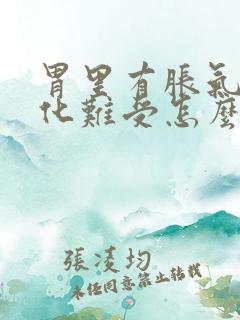 胃里有脹氣
化難受怎麼
張凌均
未经同意禁止转载